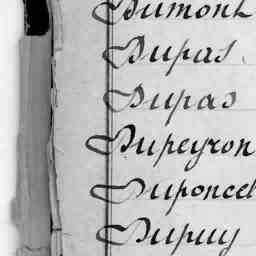 Dumont
Dupas.
Dupas
Dupeyron
Duponcel
Dupuy